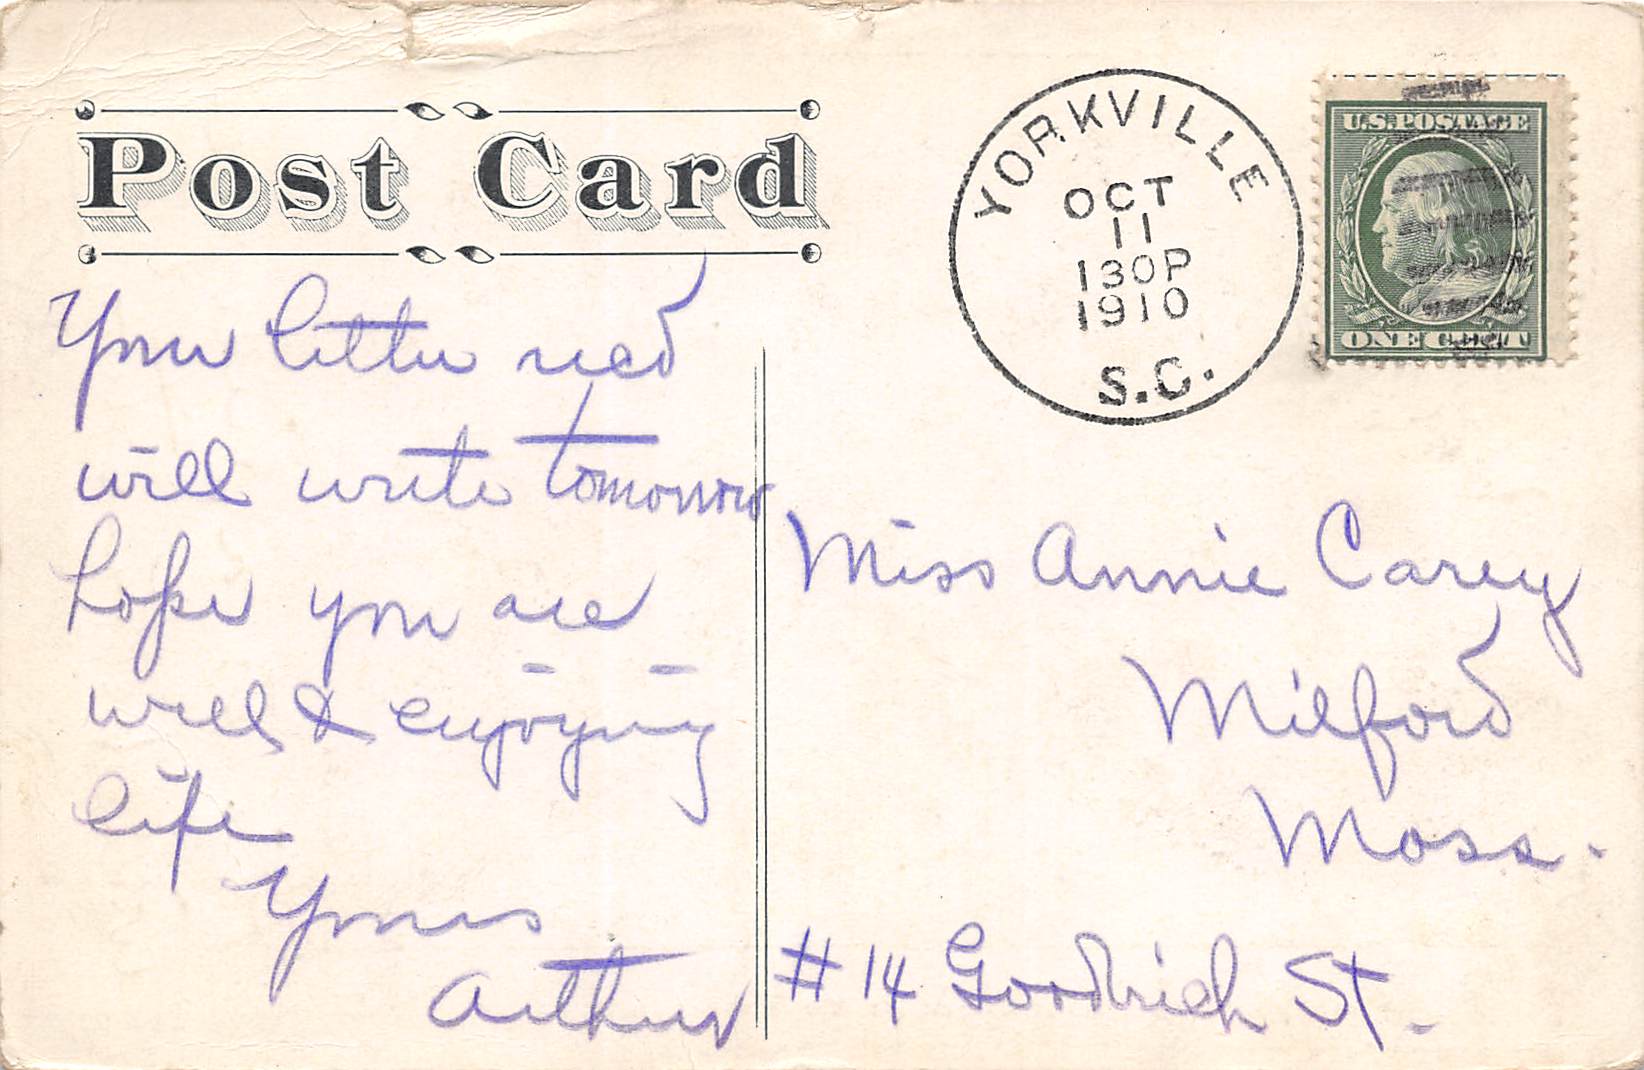 Post Card
YORKVILLE
OCT
11
130P
1910
S.C.
U.S. POSTAGE
ONE CENT
Your letter recd
will write tomorrow
hope you are
well & enjoying
life
Yours
Arthur
Miss Annie Carey
Milford
Mass.
#14 Goodrich St.